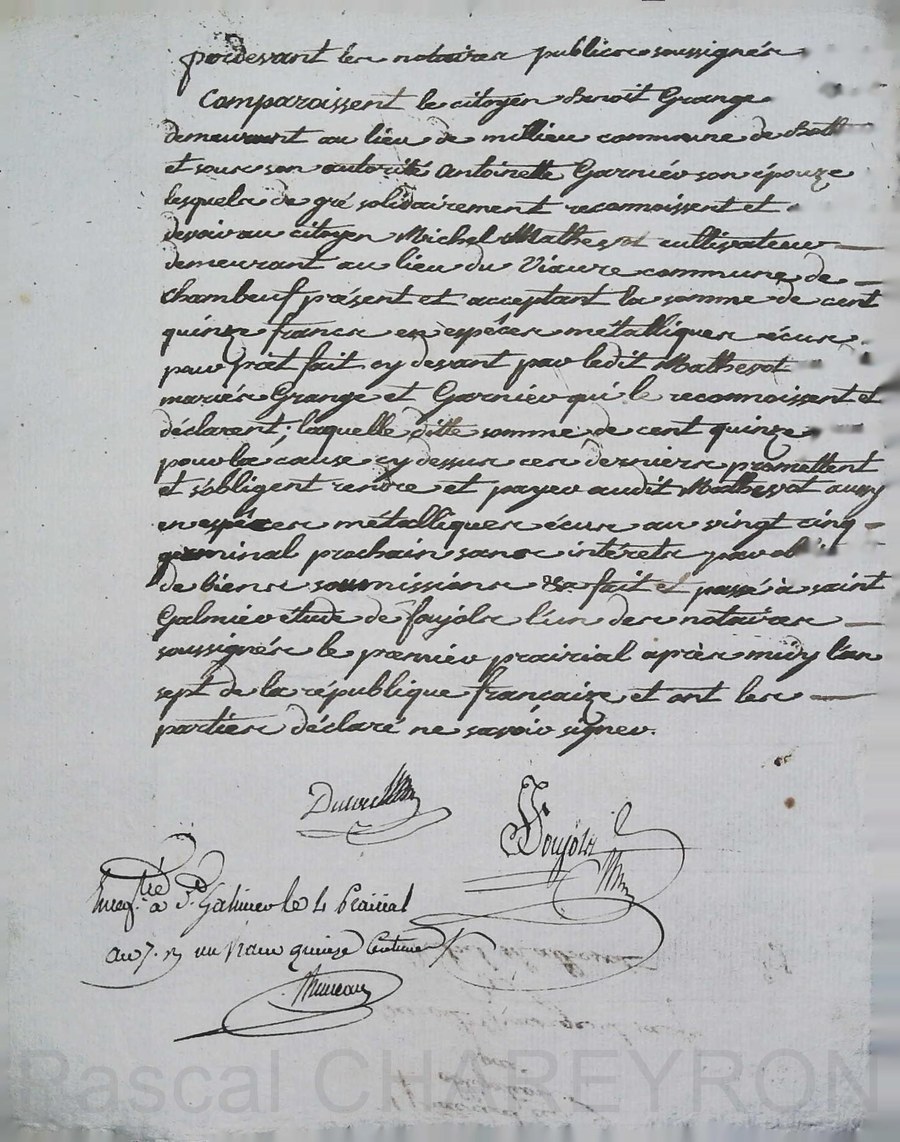 pardevant les notaires publics soussignés
Comparoissent le citoyen Benoit Grange
demeurant au lieu de millieu commune de
et sous son autorité Antoinette Garnier son épouze
lesquels de gré solidairement reconnoissent et
devoir au citoyen Michel Mathevot cultivateur
demeurant au lieu du Viaure commune de
Chambeuf présent et acceptant la somme de cent
quinze francs en espéces métalliques écus
pour prêt fait cy devant par ledit Mathevot
mariés Grange et Garnier qui le reconnoissent et
déclarent; laquelle ditte somme de cent quinze
pour la cause cy dessus ces derniers promettent
et s'obligent rendre et payer audit Mathevot aussy
en espéces métalliques écus au vingt cinq
germinal prochain sans intérêts par
de biens soumissions &a. fait et passé à saint
Galmier étude de foujols l'un des notaires
soussignés le premier prairial après midy l'an
sept de la république françaize et ont les
parties déclaré ne savoir signer.
Foujols
Enreg.tré à St. Galmier le 4 Prairial
an 7. R un franc quinze Centimes
Pascal CHAREYRON